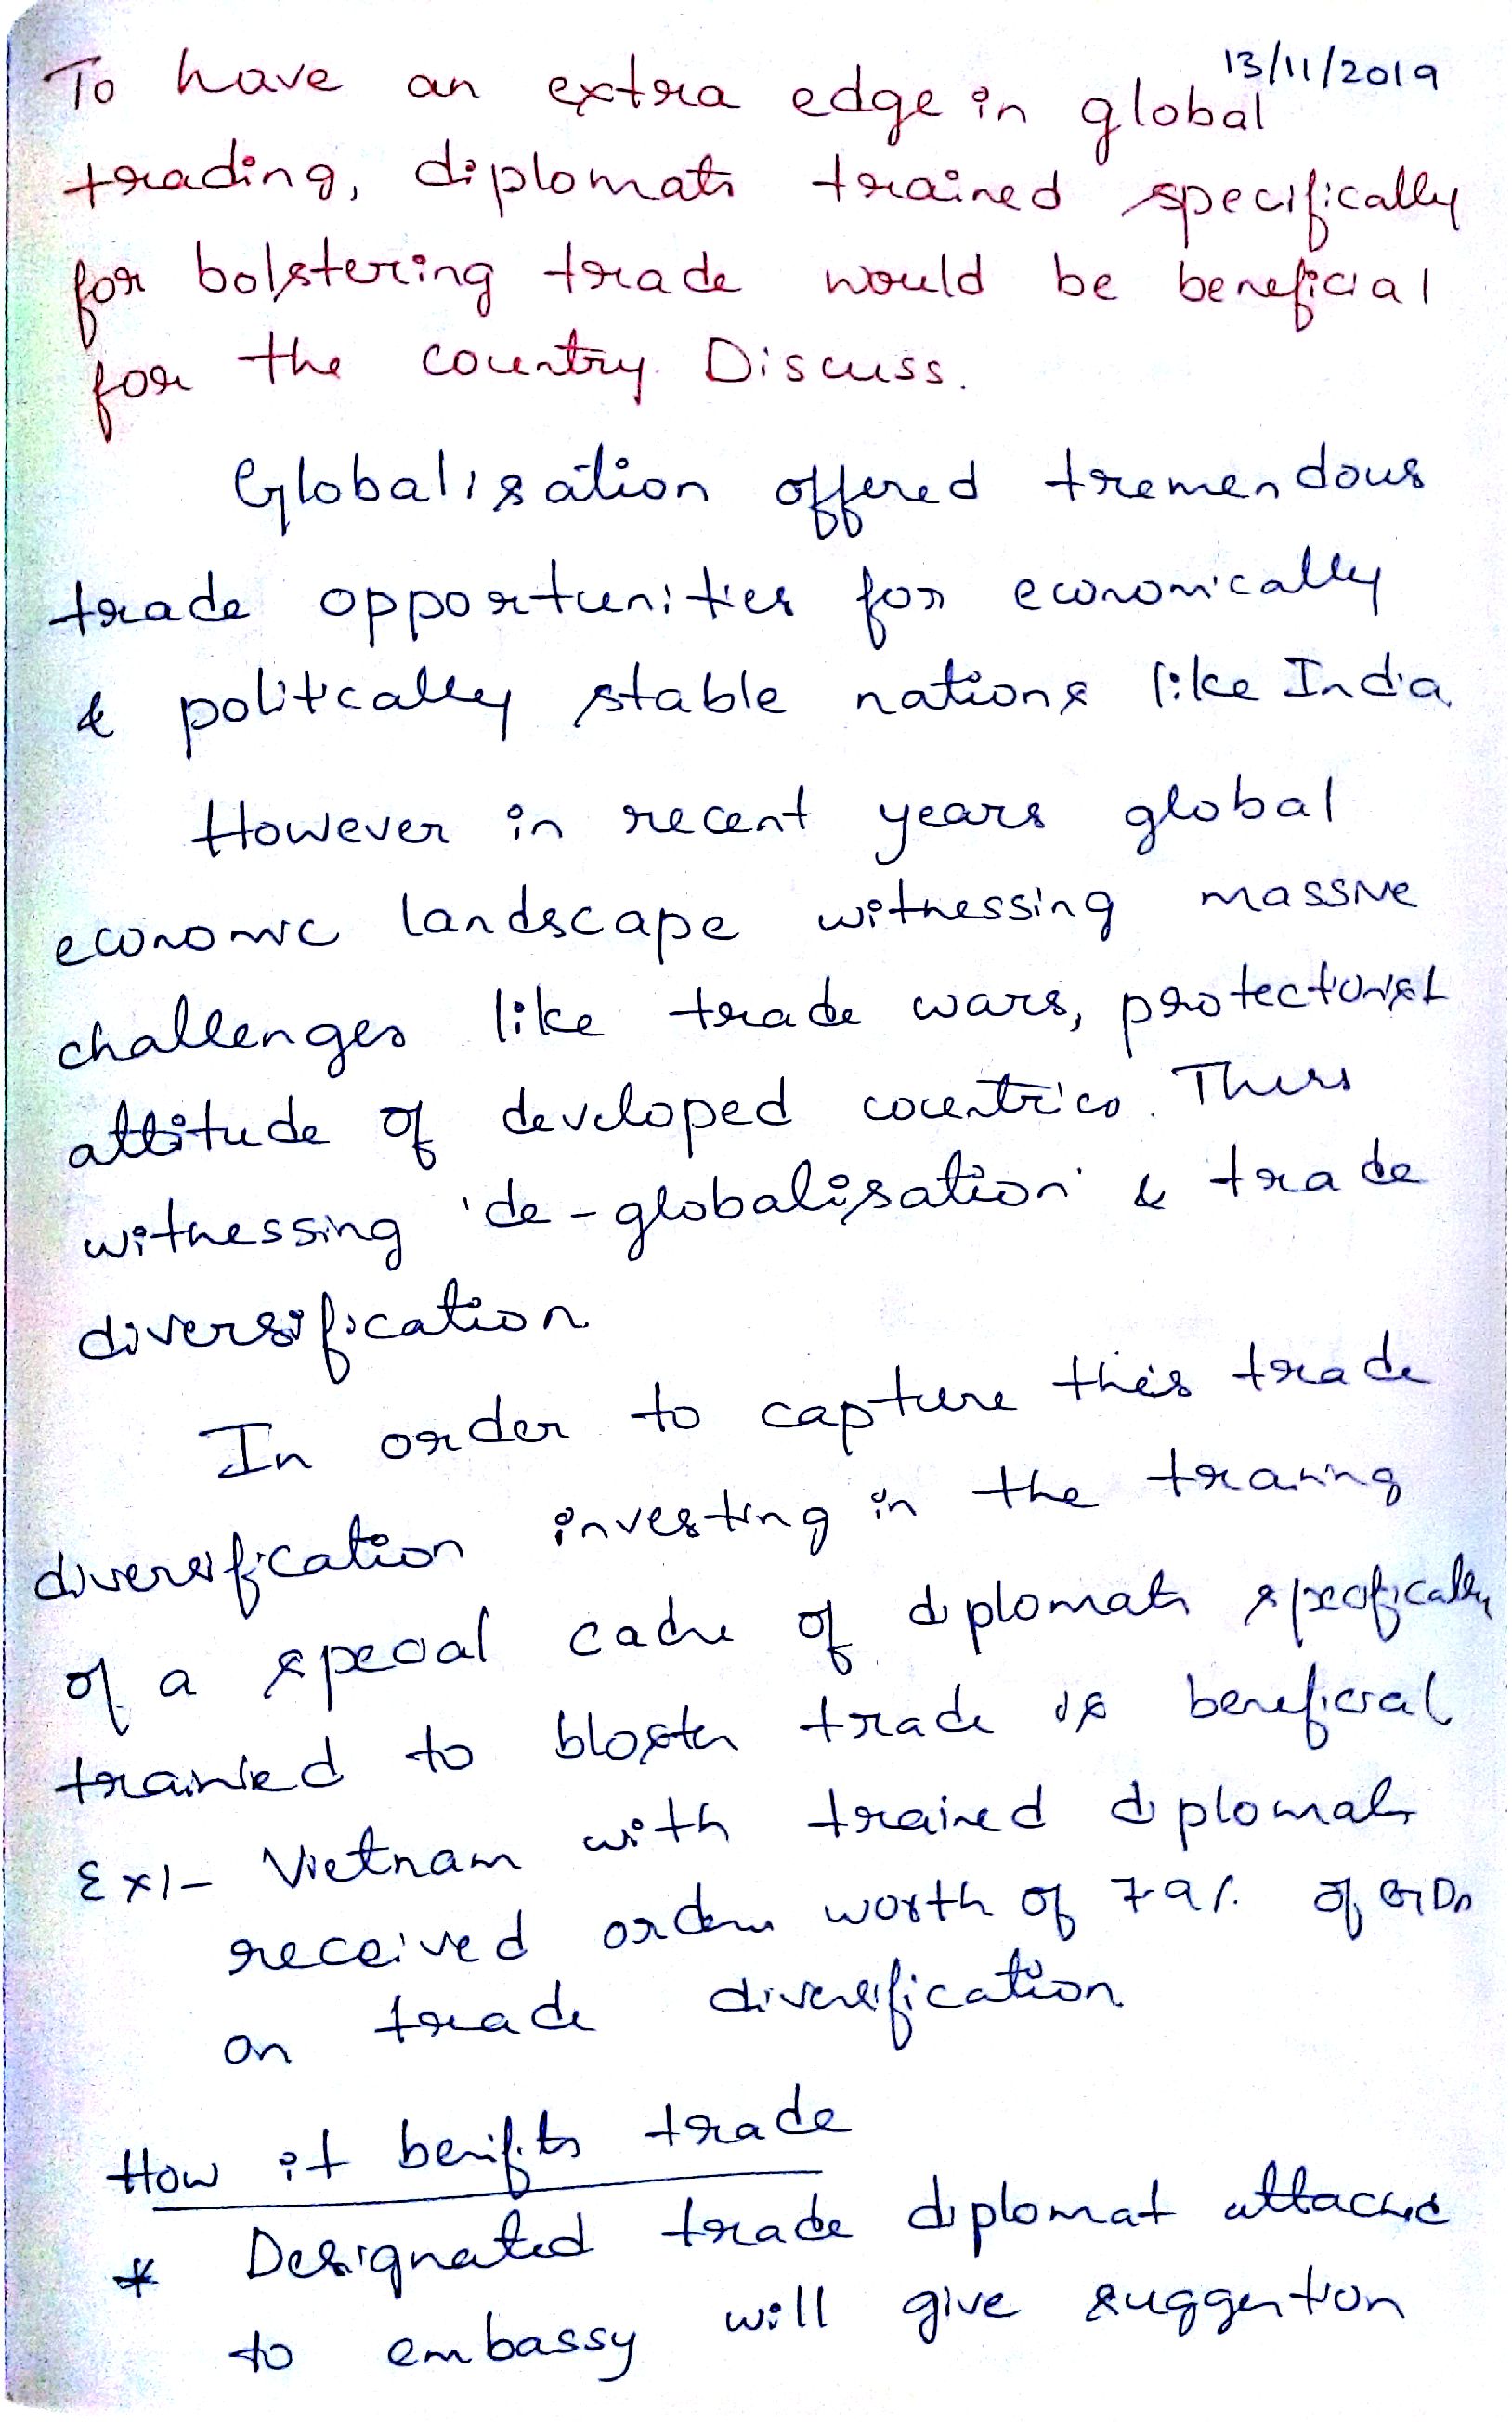 13/11/2019
To have an extra edge in global
trading, diplomats trained specifically
for bolstering trade would be beneficial
for the country. Discuss.
Globalisation offered tremendous
trade opportunities for economically
& politically stable nations like India
However in recent years global
economic landscape witnessing massive
challenges like trade wars, protectionist
attitude of developed countries. Thus
witnessing 'de-globalisation' & trade
diversification
In order to capture this trade
diversification investing in the training
of a special cadre of diplomats specifically
trained to bloster trade is beneficial
Ex:- Vietnam with trained diplomats
received orders worth of 7.9% of GDP
on trade diversification
How it benifits trade
* Designated trade diplomat attached
to embassy will give suggestion